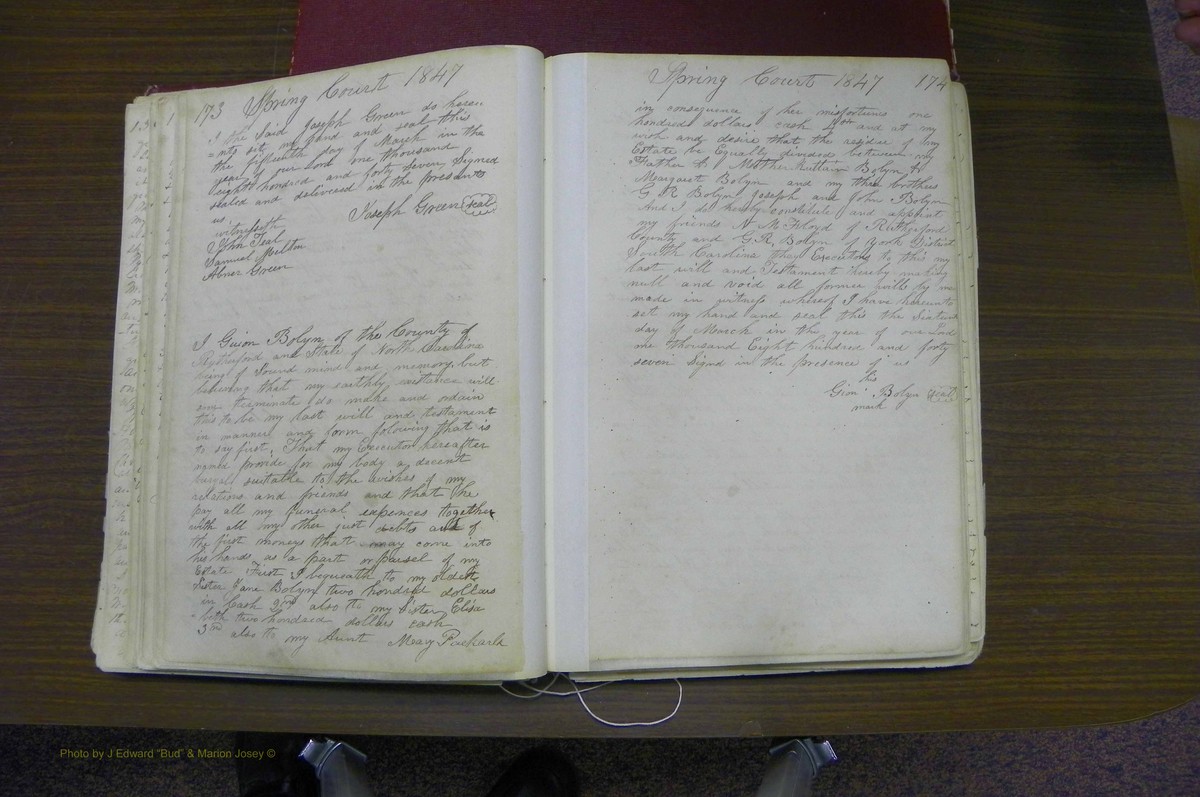 173 Spring Court 1847
I the said Joseph Green do hereu
=nto set my hand and seal this
the fifteenth day of March in the
year of our Lord one thousand
eight hundred and forty seven signed
sealed and delivered in the presents
us
Joseph Green seal
witnesseth
John Teal
Samuel Melton
Abner Green
I Guion Bolyn of the County of
Rutherford and State of North Carolina
being of sound mind and memory but
believing that my earthly existance will
soon terminate do make and ordain
this to be my last will and testament
in manner and form folowing that is
to say first, That my Executor hereafter
named provide for my body a decent
burial suitable to the wishes of my
relations and friends and that he
pay all my funeral expences together
with all my other just debts out of
the first moneys that may come into
his hands as a part or parsel of my
Estate First I bequeath to my oldest
Sister Jane Bolyn two hundred dollars
in Cash 2nd also to my Sister Elisa
=beth two hundred dollars cash
3rd also to my Aunt Mary
Spring Court 1847 174
in consequence of her misfortunes one
hundred dollars cash 4th and at my
wish and desire that the residue of my
Estate be Equally divided between my
Father & Mother Bolyn &
Margaret Bolyn and my three brothers
G R Bolyn Joseph and John Bolyn
And I do hereby constitute and appoint
my friends N. McFloyd of Rutherford
County and G.R. Bolyn of York District
South Carolina they Executors to this my
last will and Testament hereby making
null and void all former wills by me
made in witness whereof I have hereunto
set my hand and seal this the
day of March in the year of our Lord
one thousand Eight hundred and forty
seven Signed in the presence of us
his
Gion Bolyn seal
mark
Photo by J Edward "Bud" & Marion Josey ©